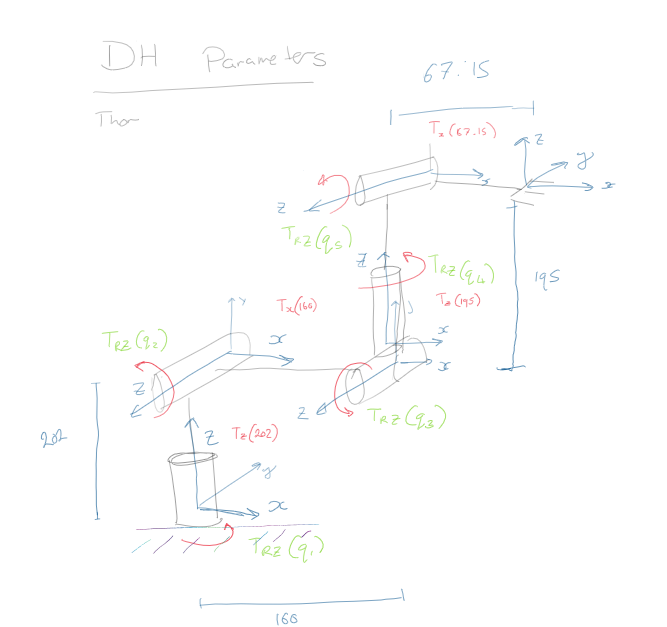 DH Parameters
Thor
67.15
Tx(67.15)
z
y
x
x
z
TRZ(q5)
z
TRZ(q4)
195
Tz(195)
y
Tx(160)
x
x
x
TRZ(q2)
z
z
TRZ(q3)
202
z
Tz(202)
y
x
TRZ(q1)
160